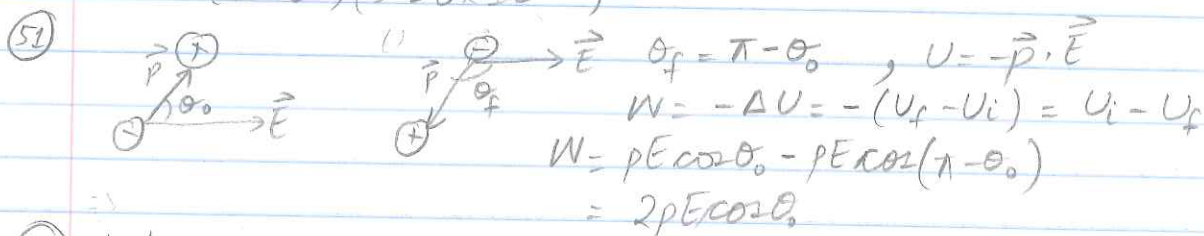 51 p⃗ + θ₀ - E⃗ p⃗ - θ_f + E⃗ θ_f = π - θ₀ , U = -p⃗ · E⃗
W = -ΔU = -(U_f - U_i) = U_i - U_f
W = pE cosθ₀ - pE cos(π - θ₀)
= 2pE cosθ₀